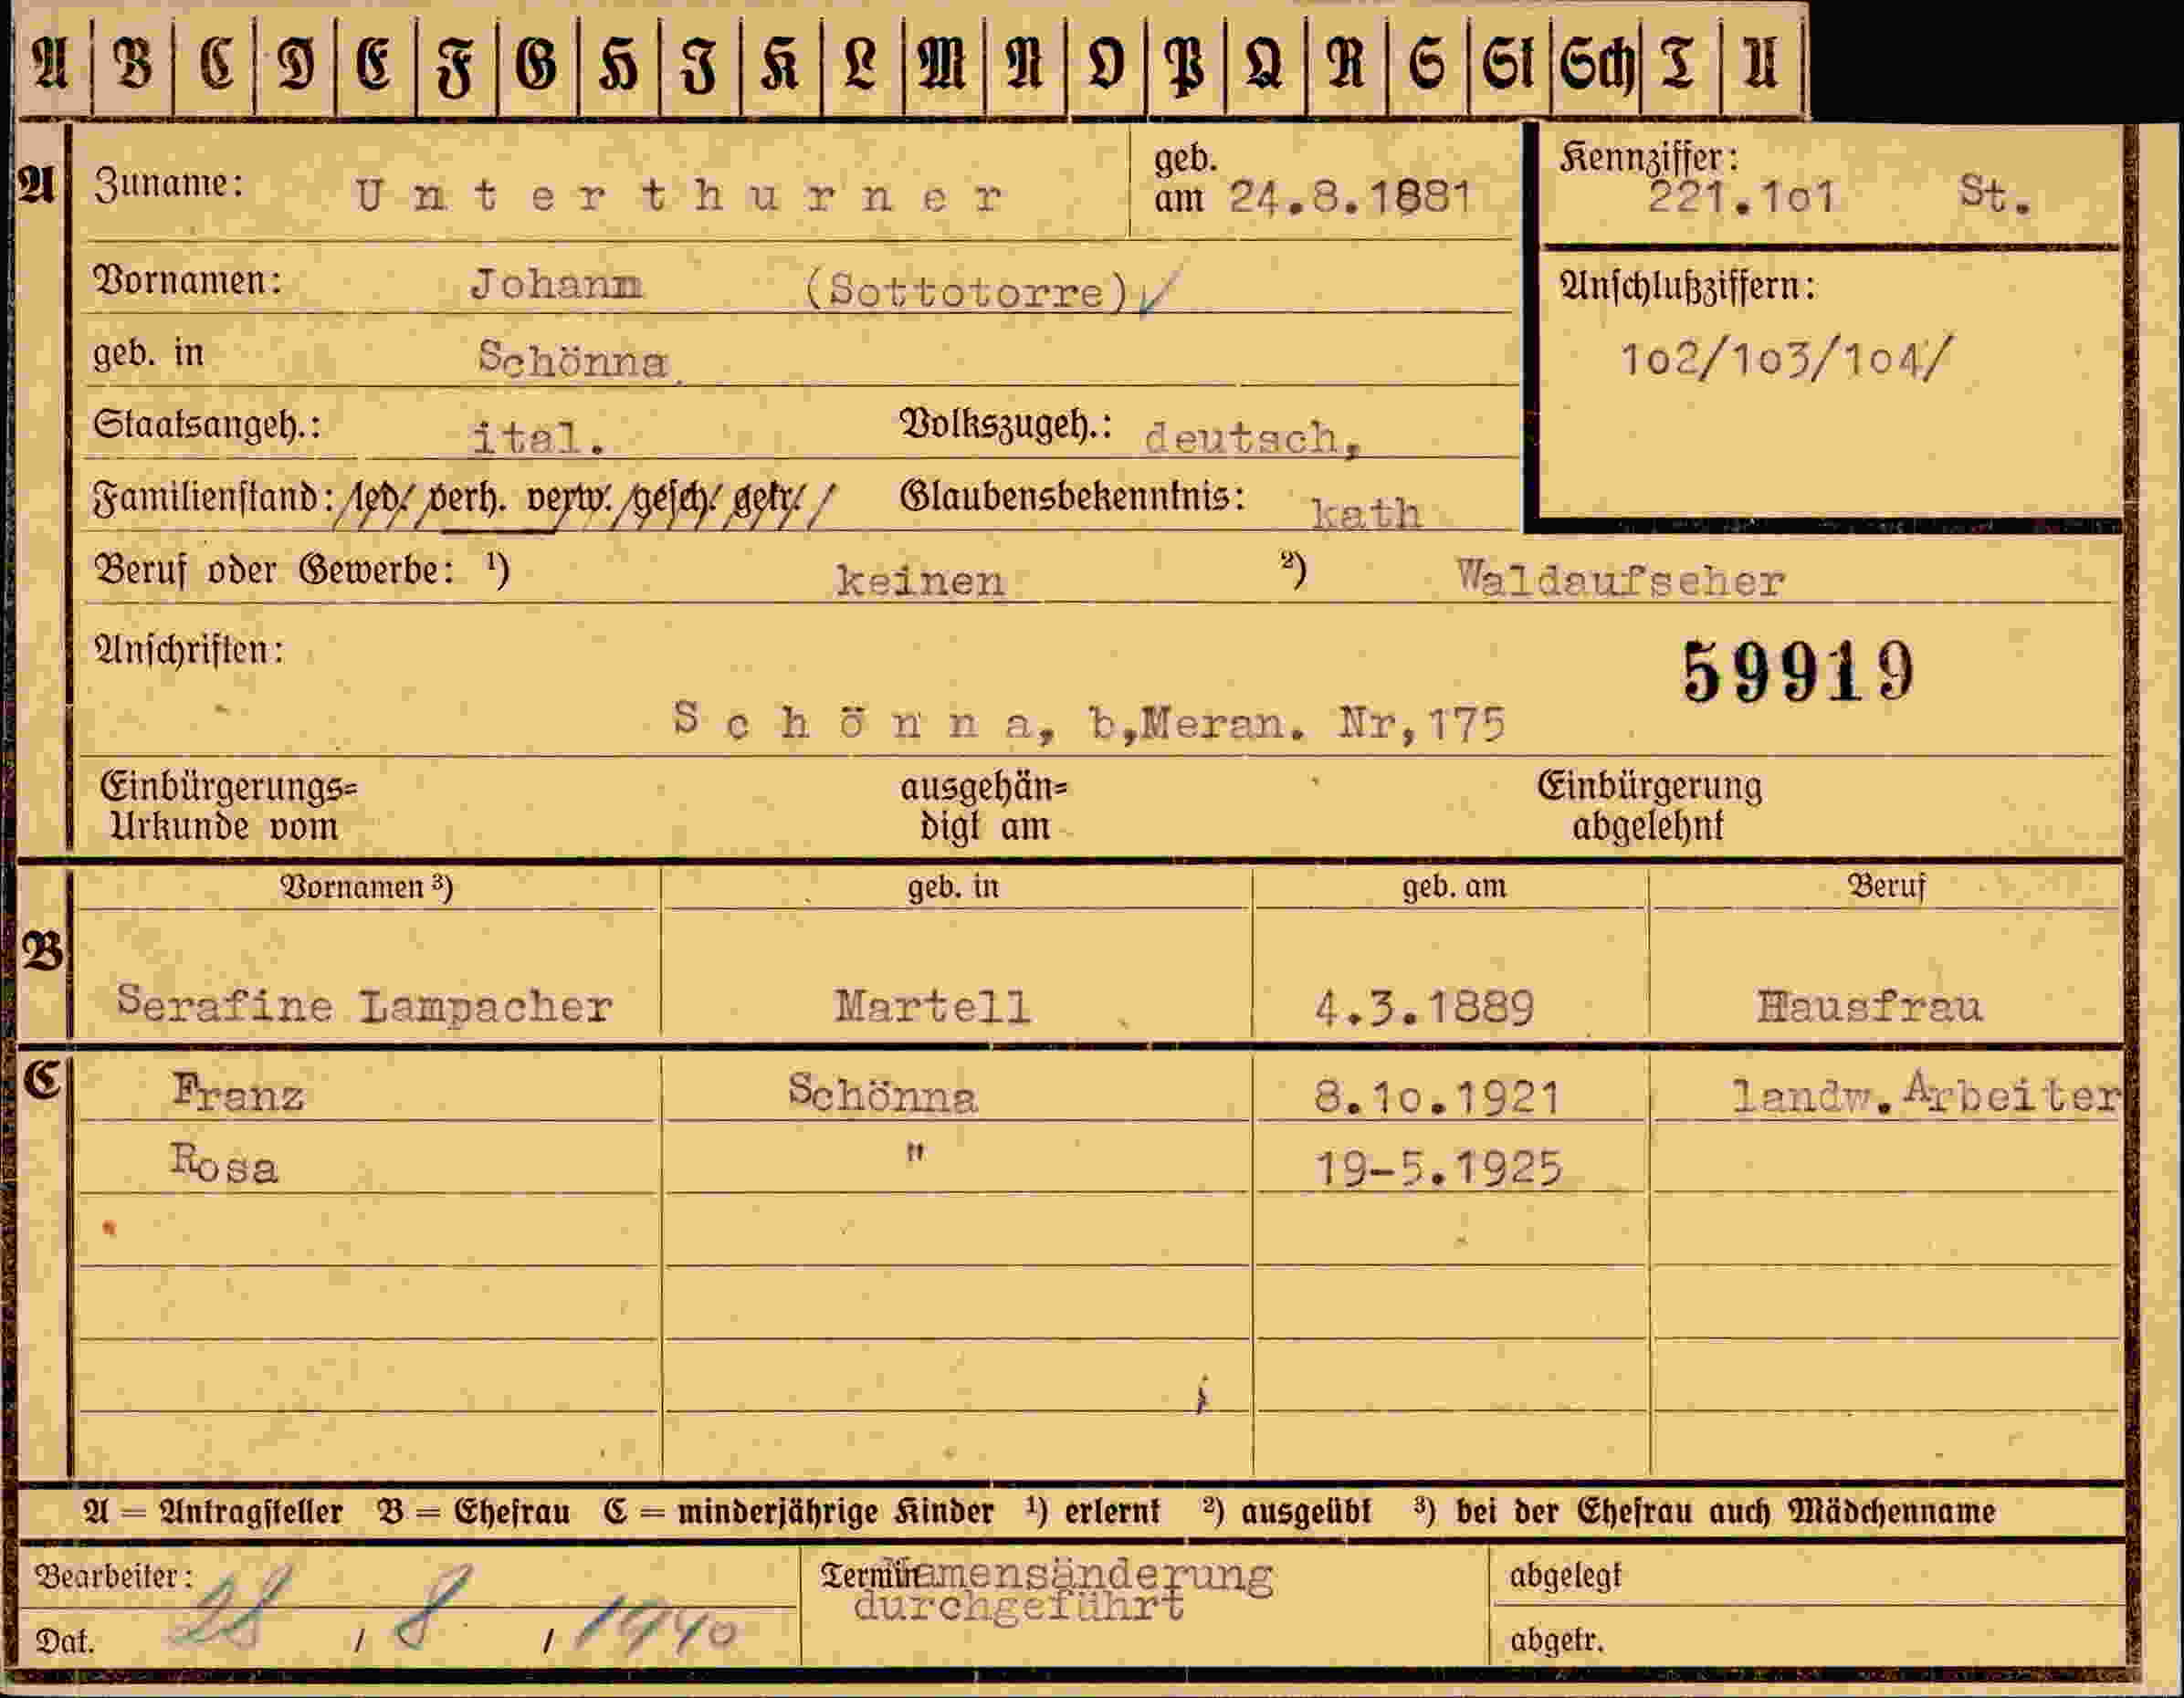 A B C D E F G H I K L M N O P Q R S St Sch T U
A Zuname: Unterthurner geb. am 24.8.1881 Kennziffer: 221.1o1 St.
Vornamen: Johann (Sottotorre) ✓ Anschlußziffern:
1o2/1o3/1o4/
geb. in Schönna
Staatsangeh.: ital. Volkszugeh.: deutsch,
Familienstand: led. verh. verw. gesch. getr. Glaubensbekenntnis: kath
Beruf oder Gewerbe: ¹) keinen ²) Waldaufseher
Anschriften: 59919
Schönna, b,Meran. Nr,175
Einbürgerungs= ausgehän= Einbürgerung
Urkunde vom digt am abgelehnt
Vornamen ³) geb. in geb. am Beruf
B
Serafine Lampacher Martell 4.3.1889 Hausfrau
C Franz Schönna 8.1o.1921 landw.Arbeiter
Rosa " 19-5.1925
A = Antragsteller B = Ehefrau C = minderjährige Kinder ¹) erlernt ²) ausgeübt ³) bei der Ehefrau auch Mädchenname
Bearbeiter: Termin Namensänderung abgelegt
durchgeführt
Dat. 28 / 8 / 1940 abgetr.